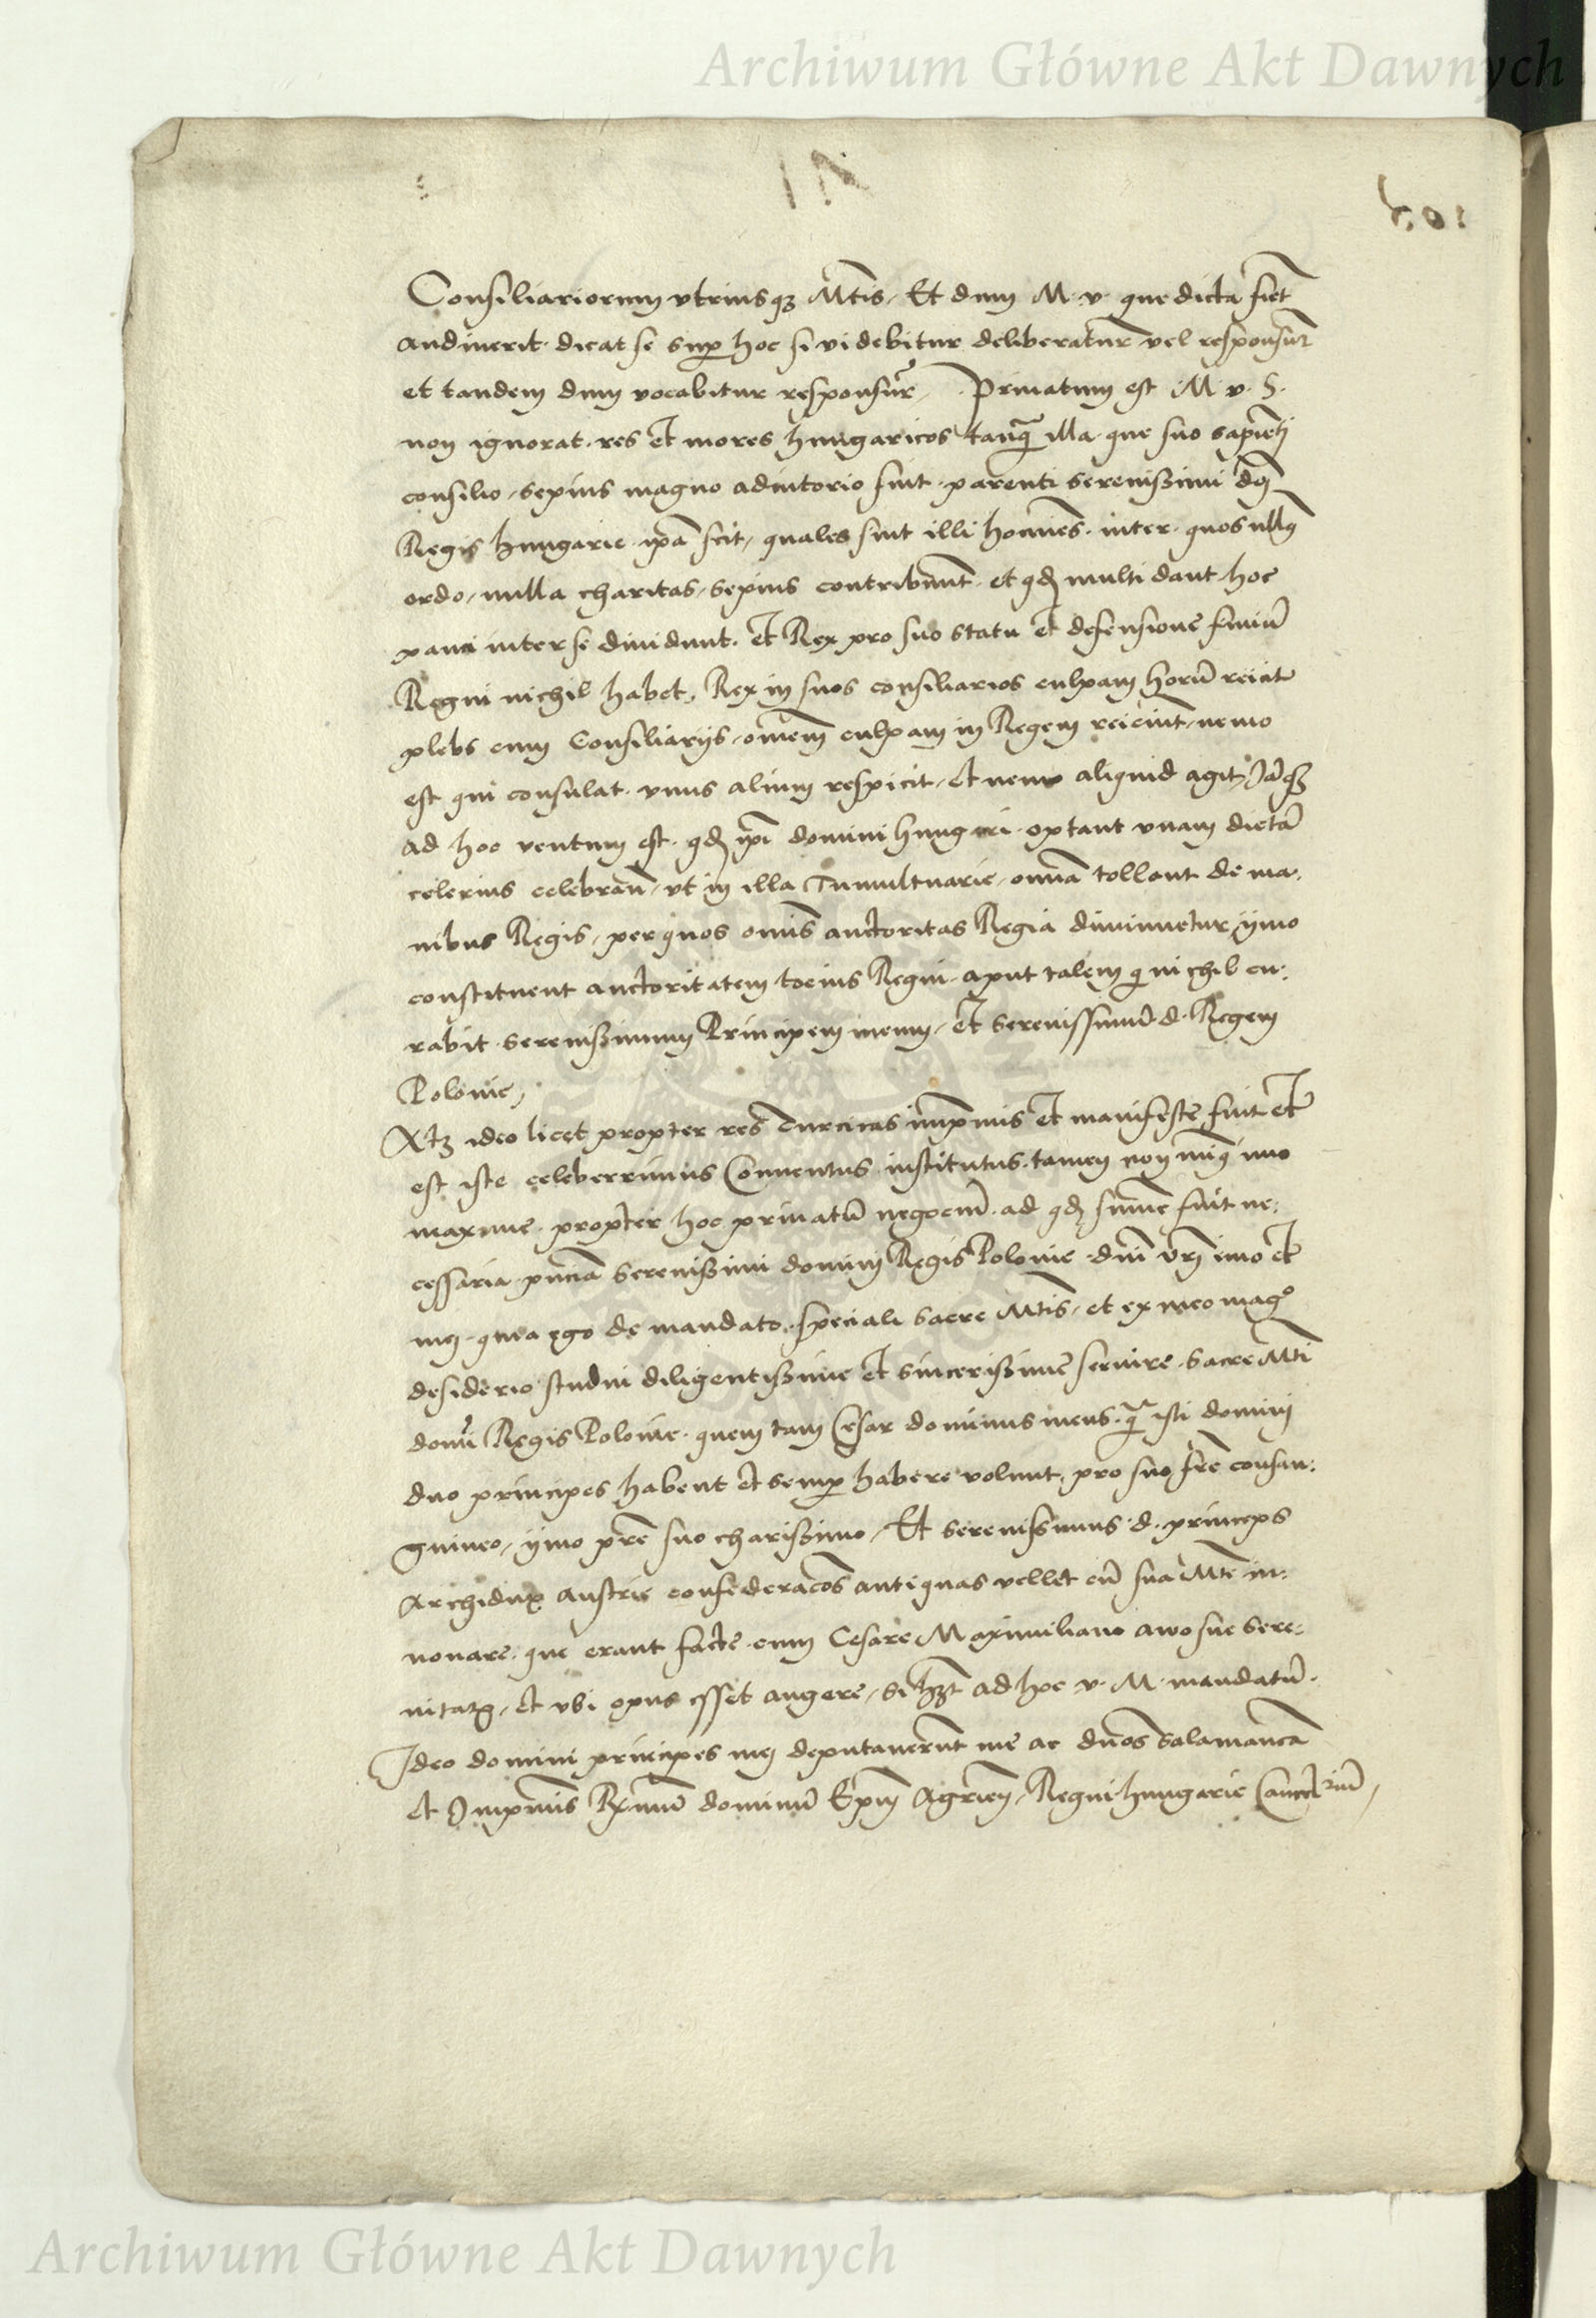 Archiwum Główne Akt Dawnych
Consiliariorum vtriusqꝫ Mtis. Et dum M. v. que dicta fiēt
audiuerit. dicat se suꝑ hoc si videbitur deliberaturū vel responsurū
et tandem dum vocabitur responsurū. Priuatum est M. v. S.
non ignorat. res et mores hungaricos tanq̄ illa. que suo sapiēti
consilio, sepius magno adiutorio fuit. parenti serenissimi dn̄i
Regis hungarie. ip̄a scit, quales sint illi homīes. inter. quos nullꝰ
ordo, nulla charitas, sepius contribuunt. et qd̄ multi dant. hoc
pauci inter se diuidunt. et Rex pro suo statu et defensione finiū
Regni nichil habet. Rex in suos consiliarios culpam horū reicit
plebs cum Consiliarijs, omnem culpam in Regem reiciunt, nemo
est qui consulat. vnus alium respicit, et nemo aliquid agit, Iāqꝫ
ad hoc ventum est. qd̄ ip̄i domini hungari. optant vnam dietā
celerius celebrari, vt in illa Tumultuarie, omnia tollant de ma.
nibus Regis, per quos omīs auctoritas Regia diminuetur, ymo
constituent auctoritatem tocius Regni. aput talem q̄ nichil cu:
rabit. serenissimum Principem meum, et serenissimū d. Regem
Polonie,
Atqꝫ ideo licet propter res Turcicas imp̄mis et manifeste fuit et
est iste celeberrimus Conuentus institutus. tamen non minꝰ imo
maxime. propter hoc priuatū negociū. ad qd̄ summe fuit ne:
cessaria. pn̄cia serenissimi domini Regis Polonie. dn̄i vr̄i imo et
mei. quia ego de mandato. speciali sacre Mtis. et ex meo mag°
desiderio studui diligentissime et sincerissime seruire. sacre Mti
domī Regis Polonie. quem tam Cesar dominus meus. q̄ isti domini
duo principes habent et semꝑ habere volunt. pro suo fr̄e consan:
guineo, ymo pr̄e suo charissimo. Et serenissimus. d. princeps
Archidux Austrie confederacōes antiquas vellet cū sua Mte in:
nouare. que erant facte. cum Cesare Maximiliano awo sue sere:
nitatꝭ, et vbi opus esset augere, si hꝫt ad hoc v. M. mandatū.
Ideo domini principes mei deputauerunt me ac dn̄os Salamanca
et Imp̄mis Rx̄mū dominū Ep̄m Agrien̄, Regni hungarie Cancelrīū,
Archiwum Główne Akt Dawnych